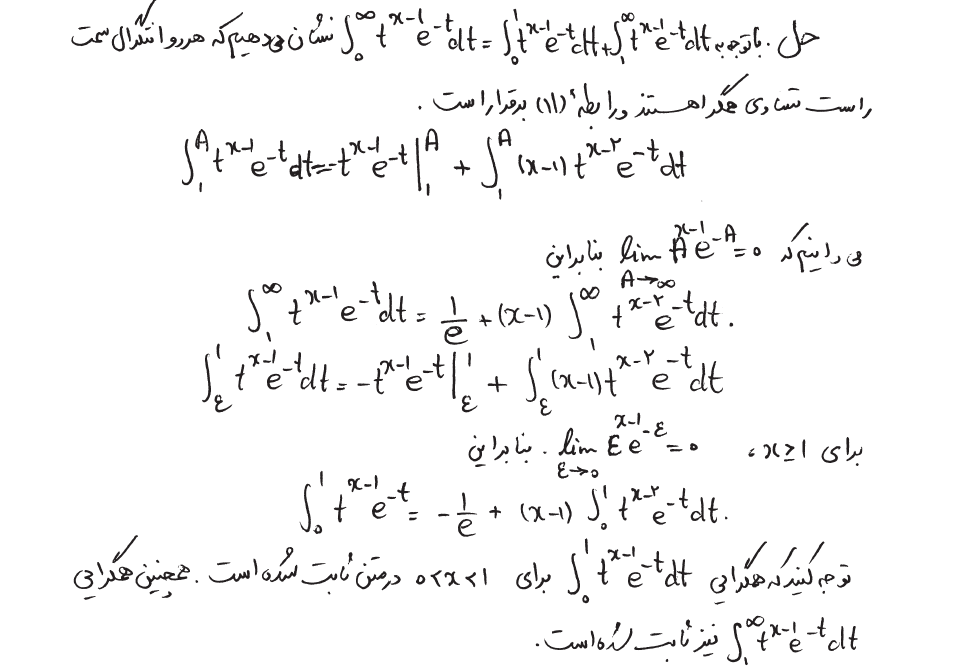 حل. با توجه به ∫₀^∞ t^{x-1}e^{-t}dt = ∫₀^1 t^{x-1}e^{-t}dt + ∫₁^∞ t^{x-1}e^{-t}dt نشان می‌دهیم که هر دو انتگرال سمت
راست تساوی همگرا هستند و رابطهٔ (۱۱) برقرار است.
∫₁^A t^{x-1}e^{-t}dt = -t^{x-1}e^{-t}|₁^A + ∫₁^A (x-1)t^{x-۲}e^{-t}dt
می‌دانیم که lim_{A→∞} A^{x-1}e^{-A} = ۰ بنابراین
∫₁^∞ t^{x-1}e^{-t}dt = 1/e + (x-1) ∫₁^∞ t^{x-۲}e^{-t}dt.
∫_ε^1 t^{x-1}e^{-t}dt = -t^{x-1}e^{-t}|_ε^1 + ∫_ε^1 (x-1)t^{x-۲}e^{-t}dt
برای x≥1، lim_{ε→۰} ε^{x-1}e^{-ε} = ۰. بنابراین
∫₀^1 t^{x-1}e^{-t} = -1/e + (x-1) ∫₀^1 t^{x-۲}e^{-t}dt.
توجه کنید که همگرایی ∫₀^1 t^{x-1}e^{-t}dt برای ۰<x<1 در متن ثابت شده است. همچنین همگرایی
∫₁^∞ t^{x-1}e^{-t}dt نیز ثابت شده است.